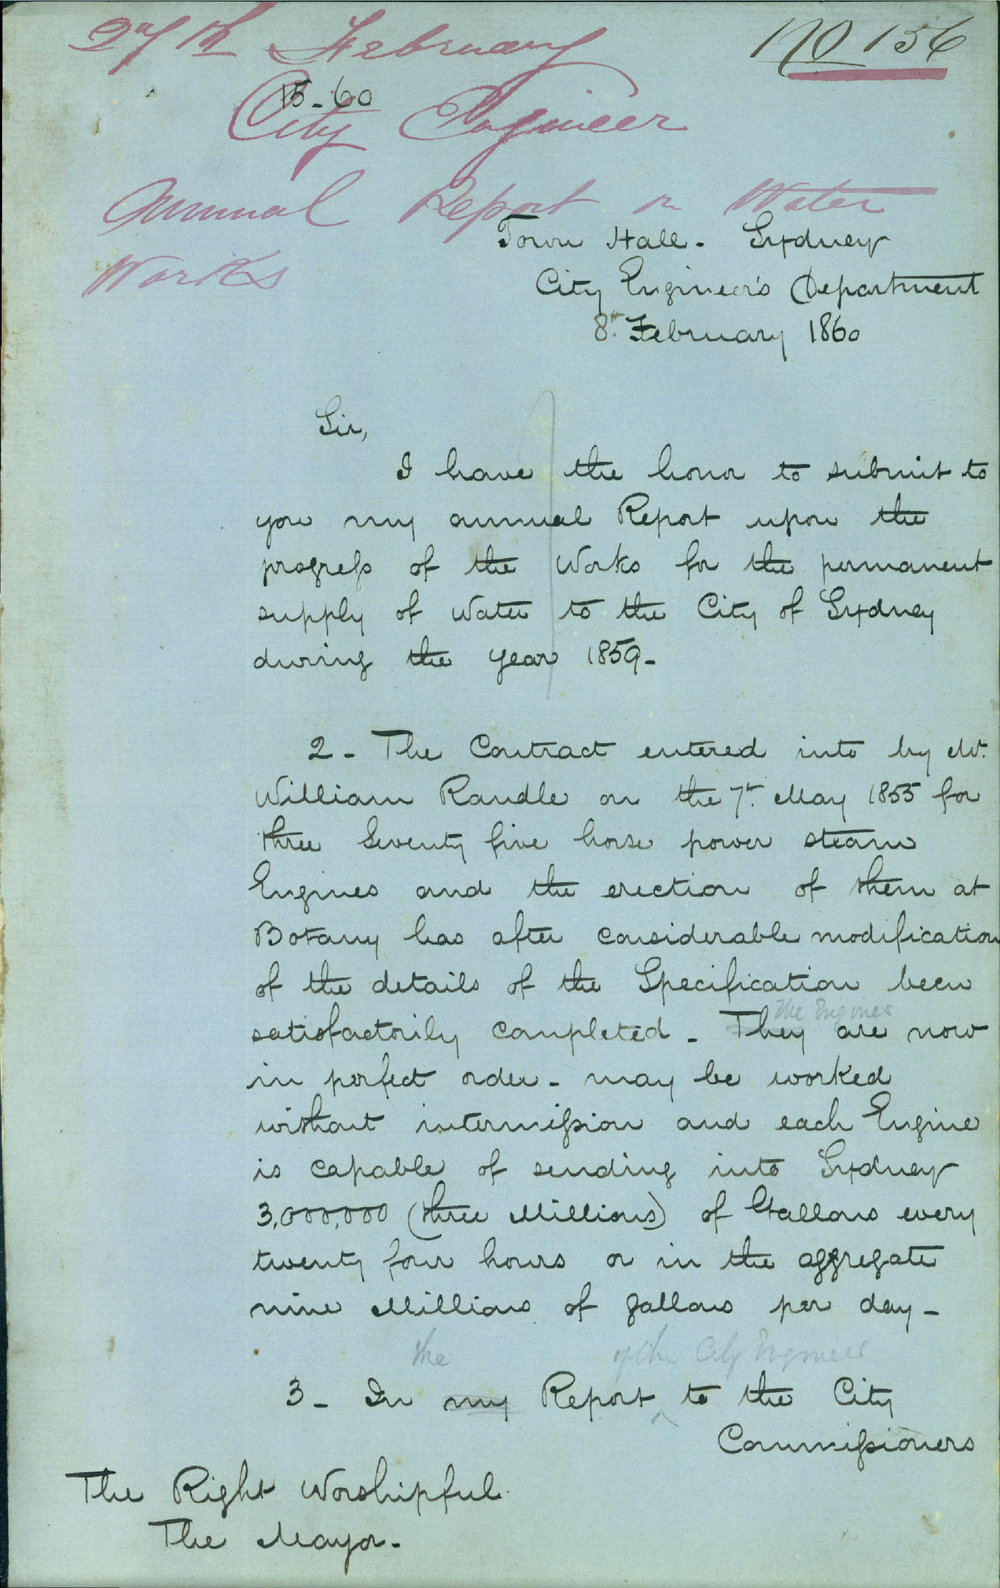 27th February
No 156
15-60
City Engineer
Annual Report on Water
Works
Town Hall - Sydney
City Engineer's Department
8th February 1860
Sir,
I have the honor to submit to
you my annual Report upon the
progress of the Works for the permanent
supply of Water to the City of Sydney
during the year 1859 -
2 - The Contract entered into by Mr.
William Randle on the 7th May 1855 for
three Seventy five horse power steam
Engines and the erection of them at
Botany has after considerable modification
of the details of the Specification been
the Engines
satisfactorily completed - They are now
in perfect order - may be worked
without intermission and each Engine
is capable of sending into Sydney
3,000,000 (three Millions) of Gallons every
twenty four hours or in the aggregate
nine Millions of gallons per day -
the of the City Engineer
3 - In my Report to the City
Commissioners
The Right Worshipful
The Mayor -